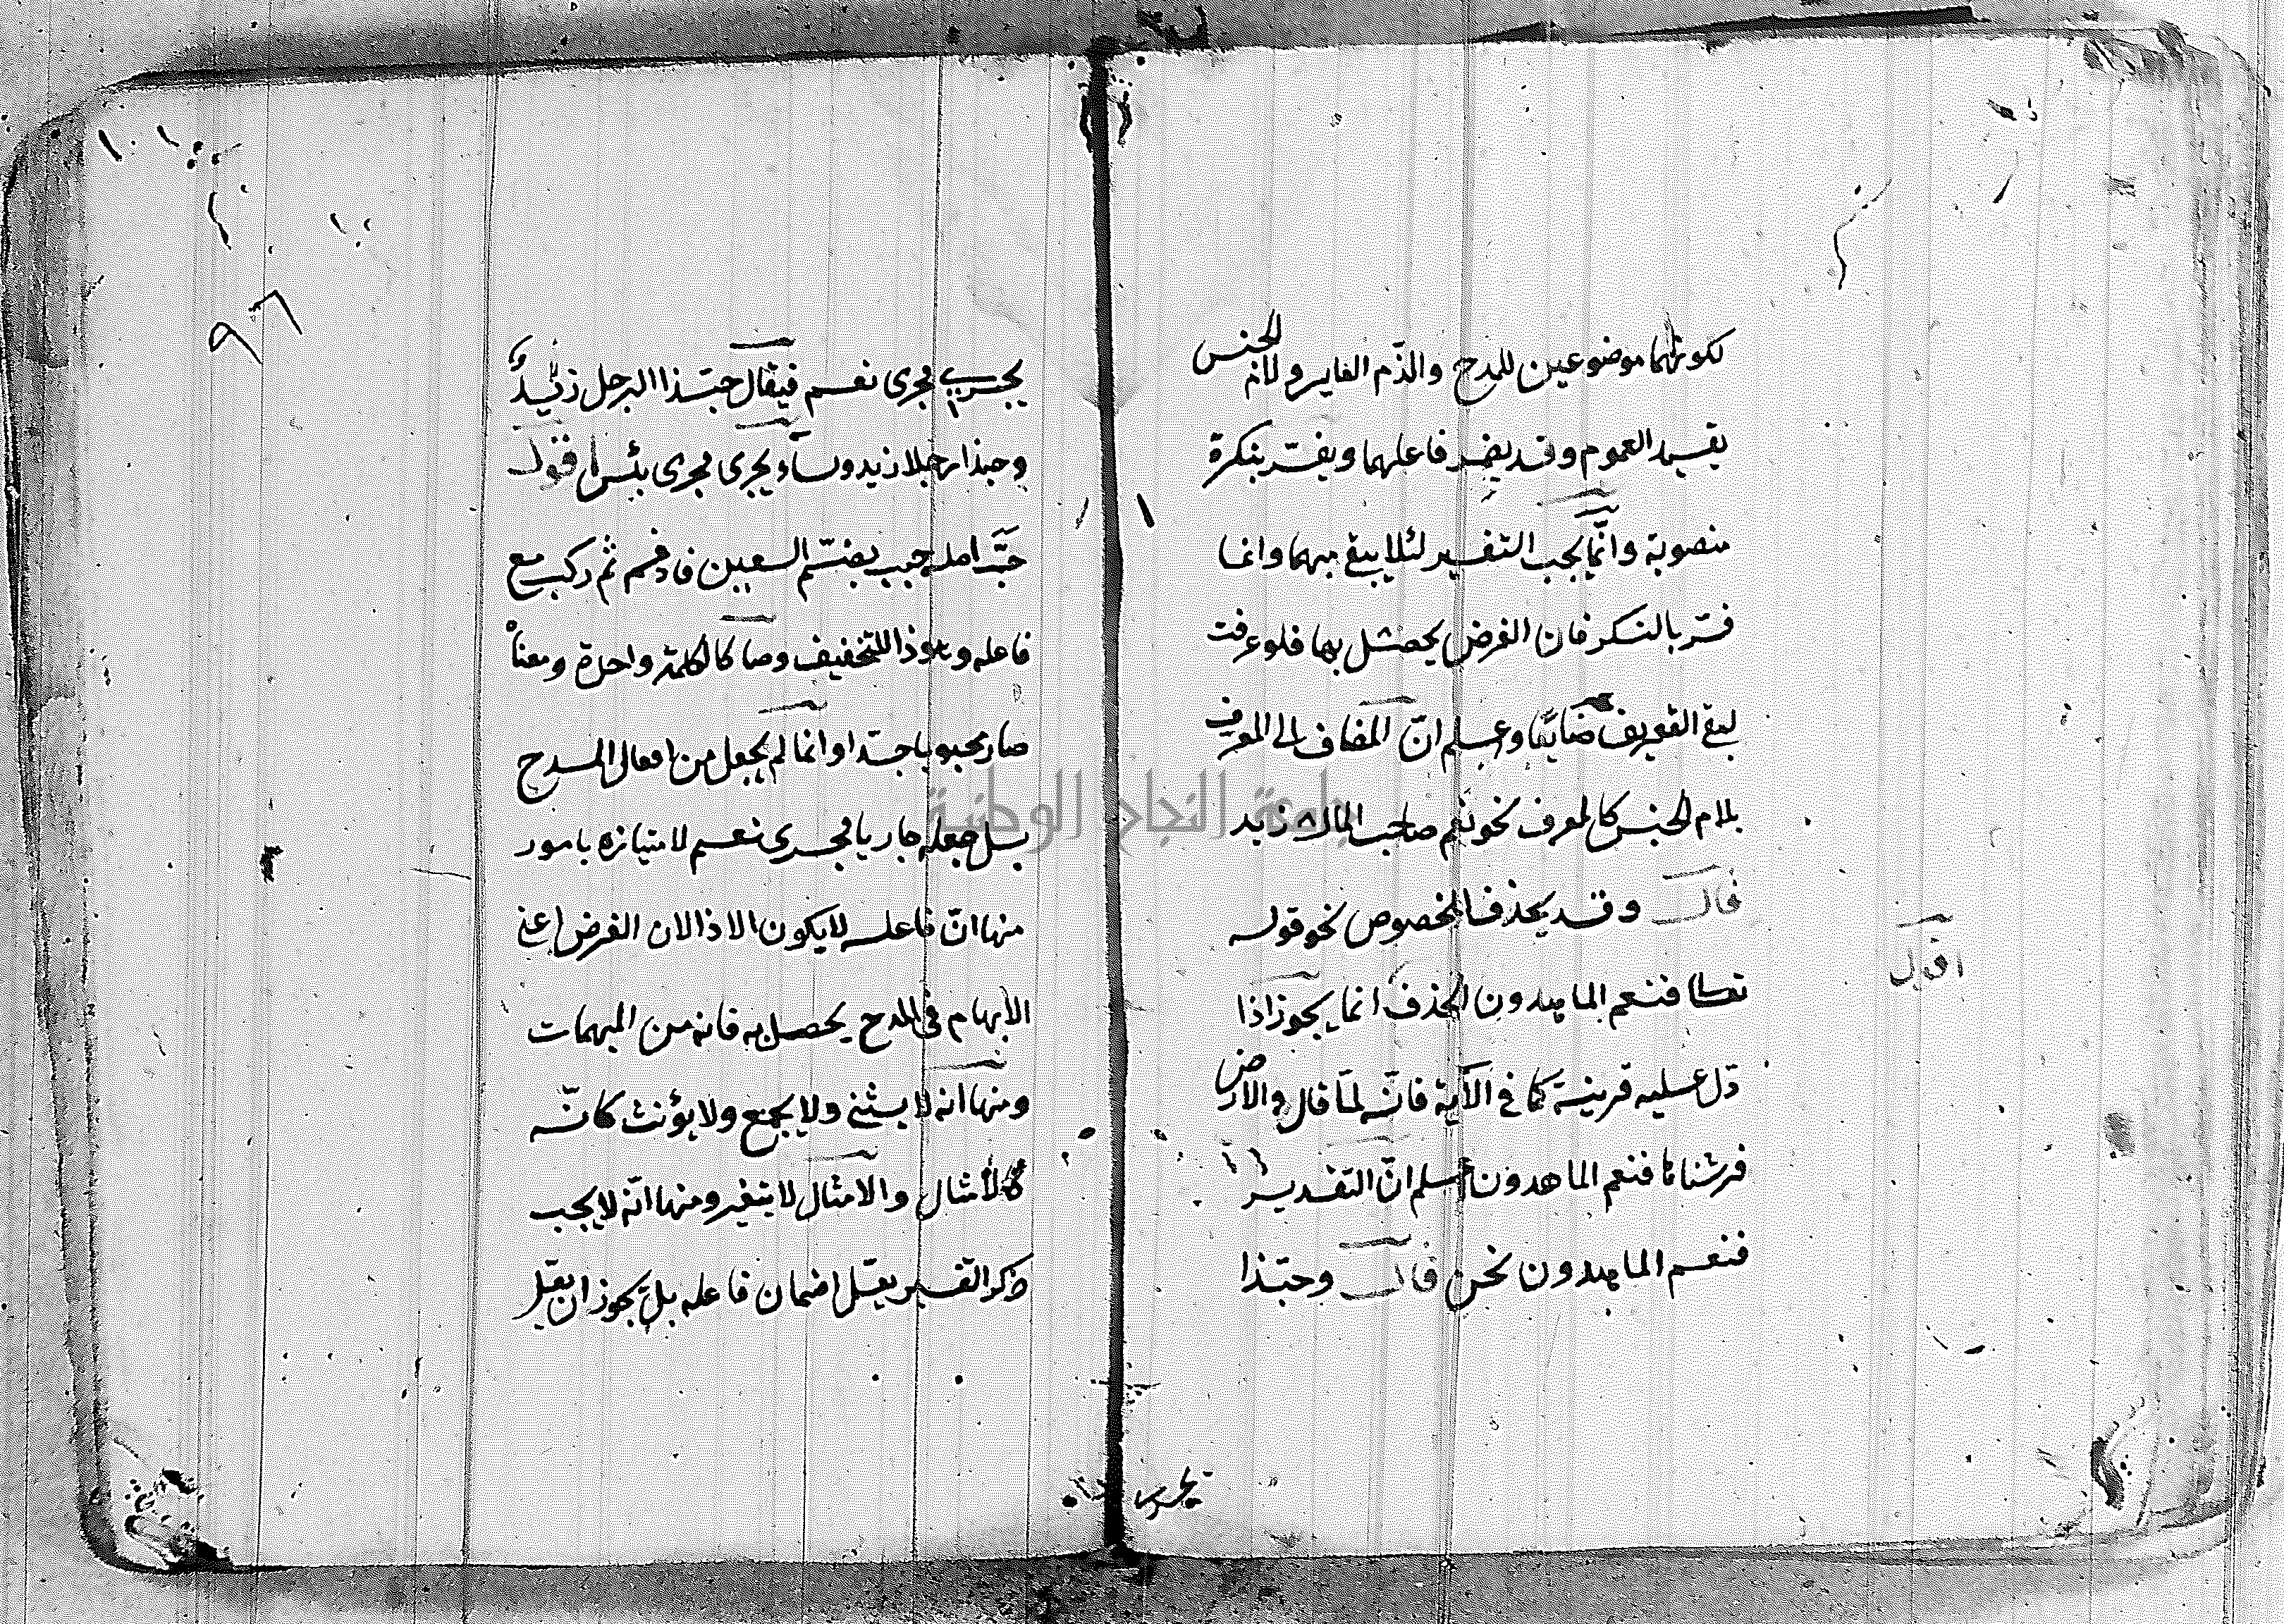 لكونهما موضوعين للمدح والذم الغاير ولام الجنس
يفيد العموم وقد يضمر فاعلهما ويفسّر بنكرة
منصوبة وانّما يجب التفسير لئلا يبقى مبهما وانما
فسّر بالنكر فان الغرض يحصل بها فلو عرفت
لبقى التعريف ضايعًا واعلم انّ المضاف الى المعرف
بلام الجنس كالمعرف نحو نعم صاحب المال زيد
قال وقد يحذف المخصوص نحو قوله
تعالى فنعم الماهدون الحذف انما يجوز اذا
اقول
دل عليه قرينة كما فى الآية فانّه لمّا قال والارض
فرشناها فنعم الماهدون اعلم انّ التقدير
فنعم الماهدون نحن قال وحبّذا
يجرى
٩٦
يجرى مجرى نعم فيقال حبّذا الرجل زيدٌ
وحبذا رجلا زيد وساء يجرى مجرى بئس اقول
حبَّ اصله حبب بضمّ العين فادغم ثم ركب مع
فاعله وهو ذا للتخفيف وصا كالكلمة واحدة ومعناه
صار محبوبا جدّا وانما لم يجعل من افعال المدح
بل جعله جاريا مجرى نعم لامتيازه بامور
منها انّ فاعله لا يكون الا ذا لان الغرض اعنى
الابهام فى المدح يحصل به فانه من المبهمات
ومنها انه لا يثنى ولا يجمع ولا يؤنث كانّه
كالأمثال والامثال لا يتغير ومنها انّه لا يجب
ذكر التفسير بعد اضمار فاعله بل يجوز ان يقال
جامعة النجاح الوطنية